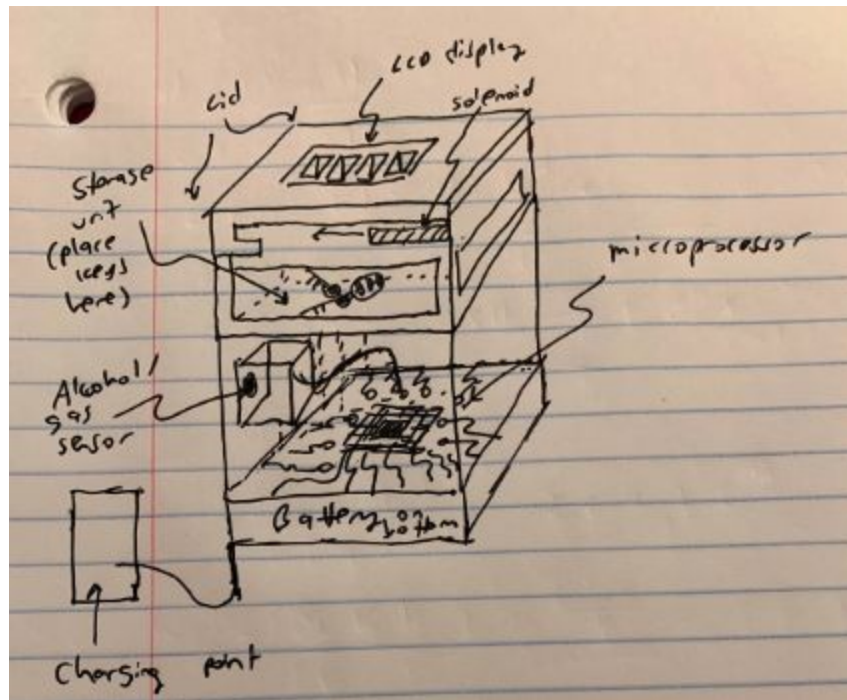 LCD display
Lid
solenoid
Storage
unit
(place
keys
here)
microprocessor
Alcohol/
gas
sensor
Battery
bottom
Charging point